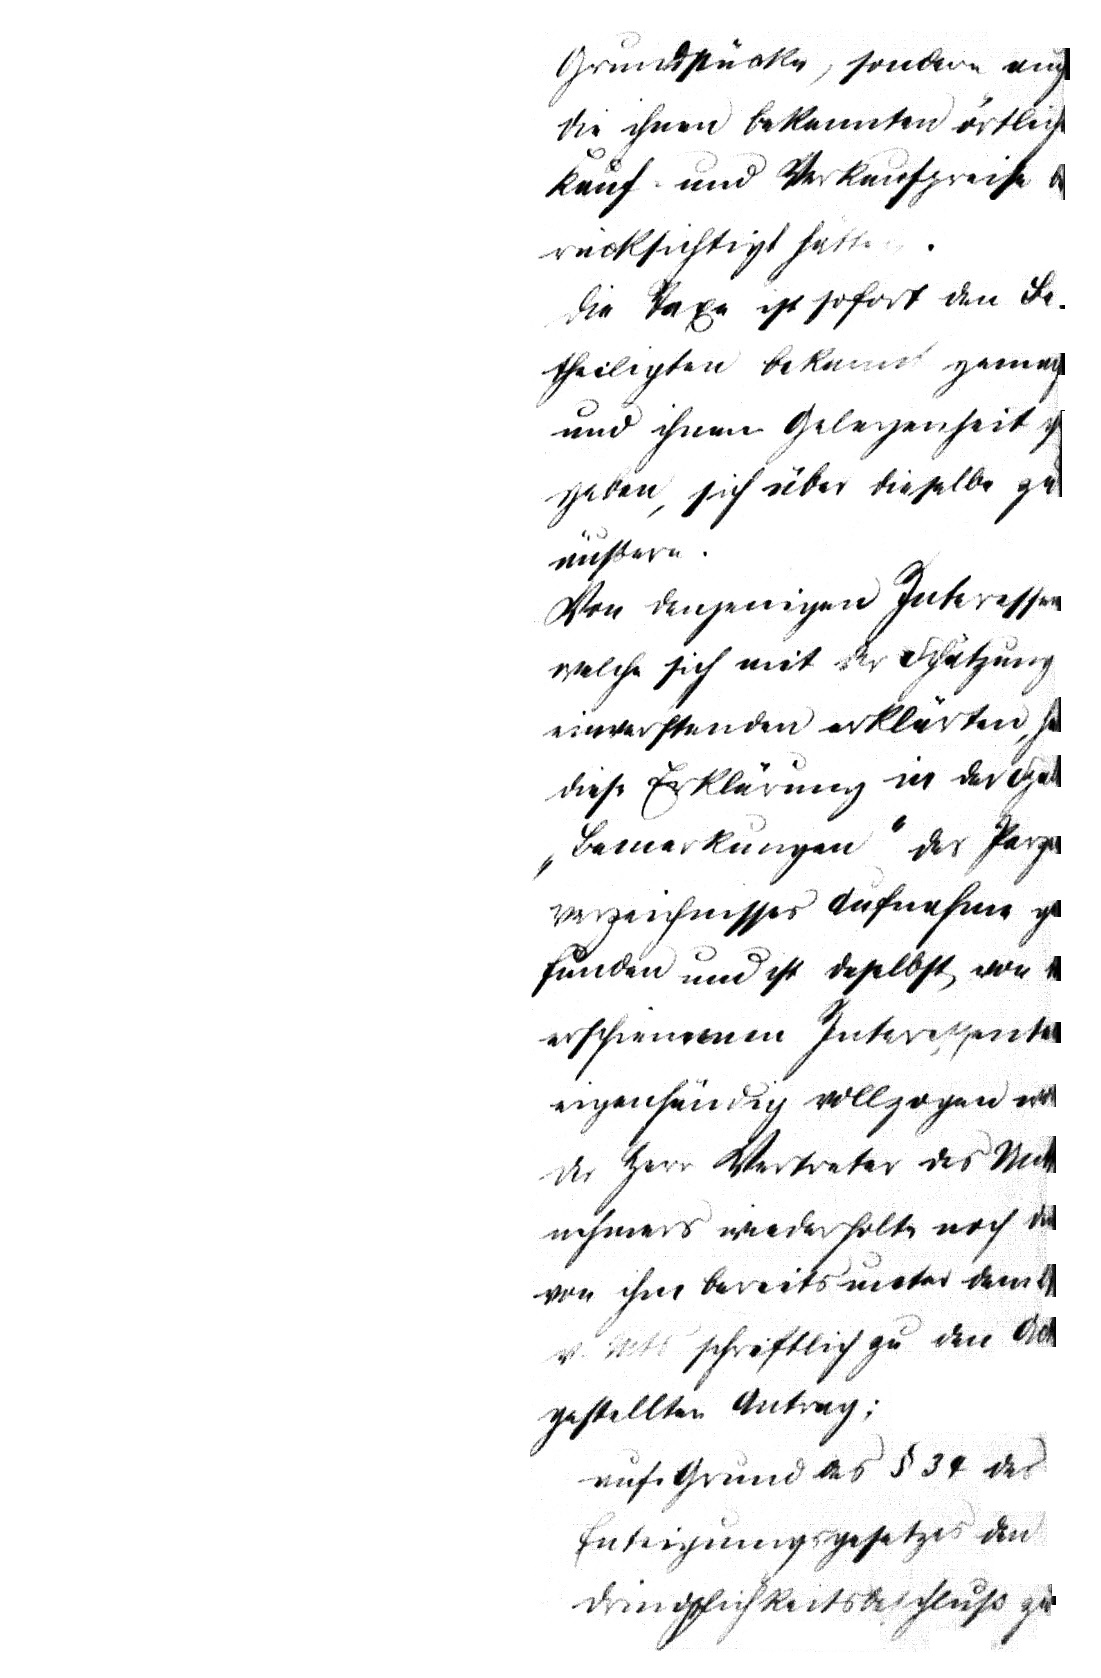 Grundstücke, sondern auch
die ihnen bekannten örtlich
Kauf- und Verkaufspreise be
rücksichtigt hätten.
Die Taxe ist sofort den Be-
theiligten bekannt gemach
und ihnen Gelegenheit ge
geben, sich über dieselbe zu
äußern.
Von denjenigen Interessen
welche sich mit der Schätzung
einverstanden erklärten, ha
diese Erklärung in der Spal
„Bemerkungen“ des Parze
verzeichnisses Aufnahme ge
funden und ist daselbst von
erschienenen Interessenten
eigenhändig vollzogen wor
Der Herr Vertreter des Unter
nehmers wiederholte noch den
von ihm bereits unter dem
v. Mts schriftlich zu den Act
gestellten Antrag;
auf Grund des § 34 des
Enteignungsgesetzes den
Dringlichkeitsbeschluß zu